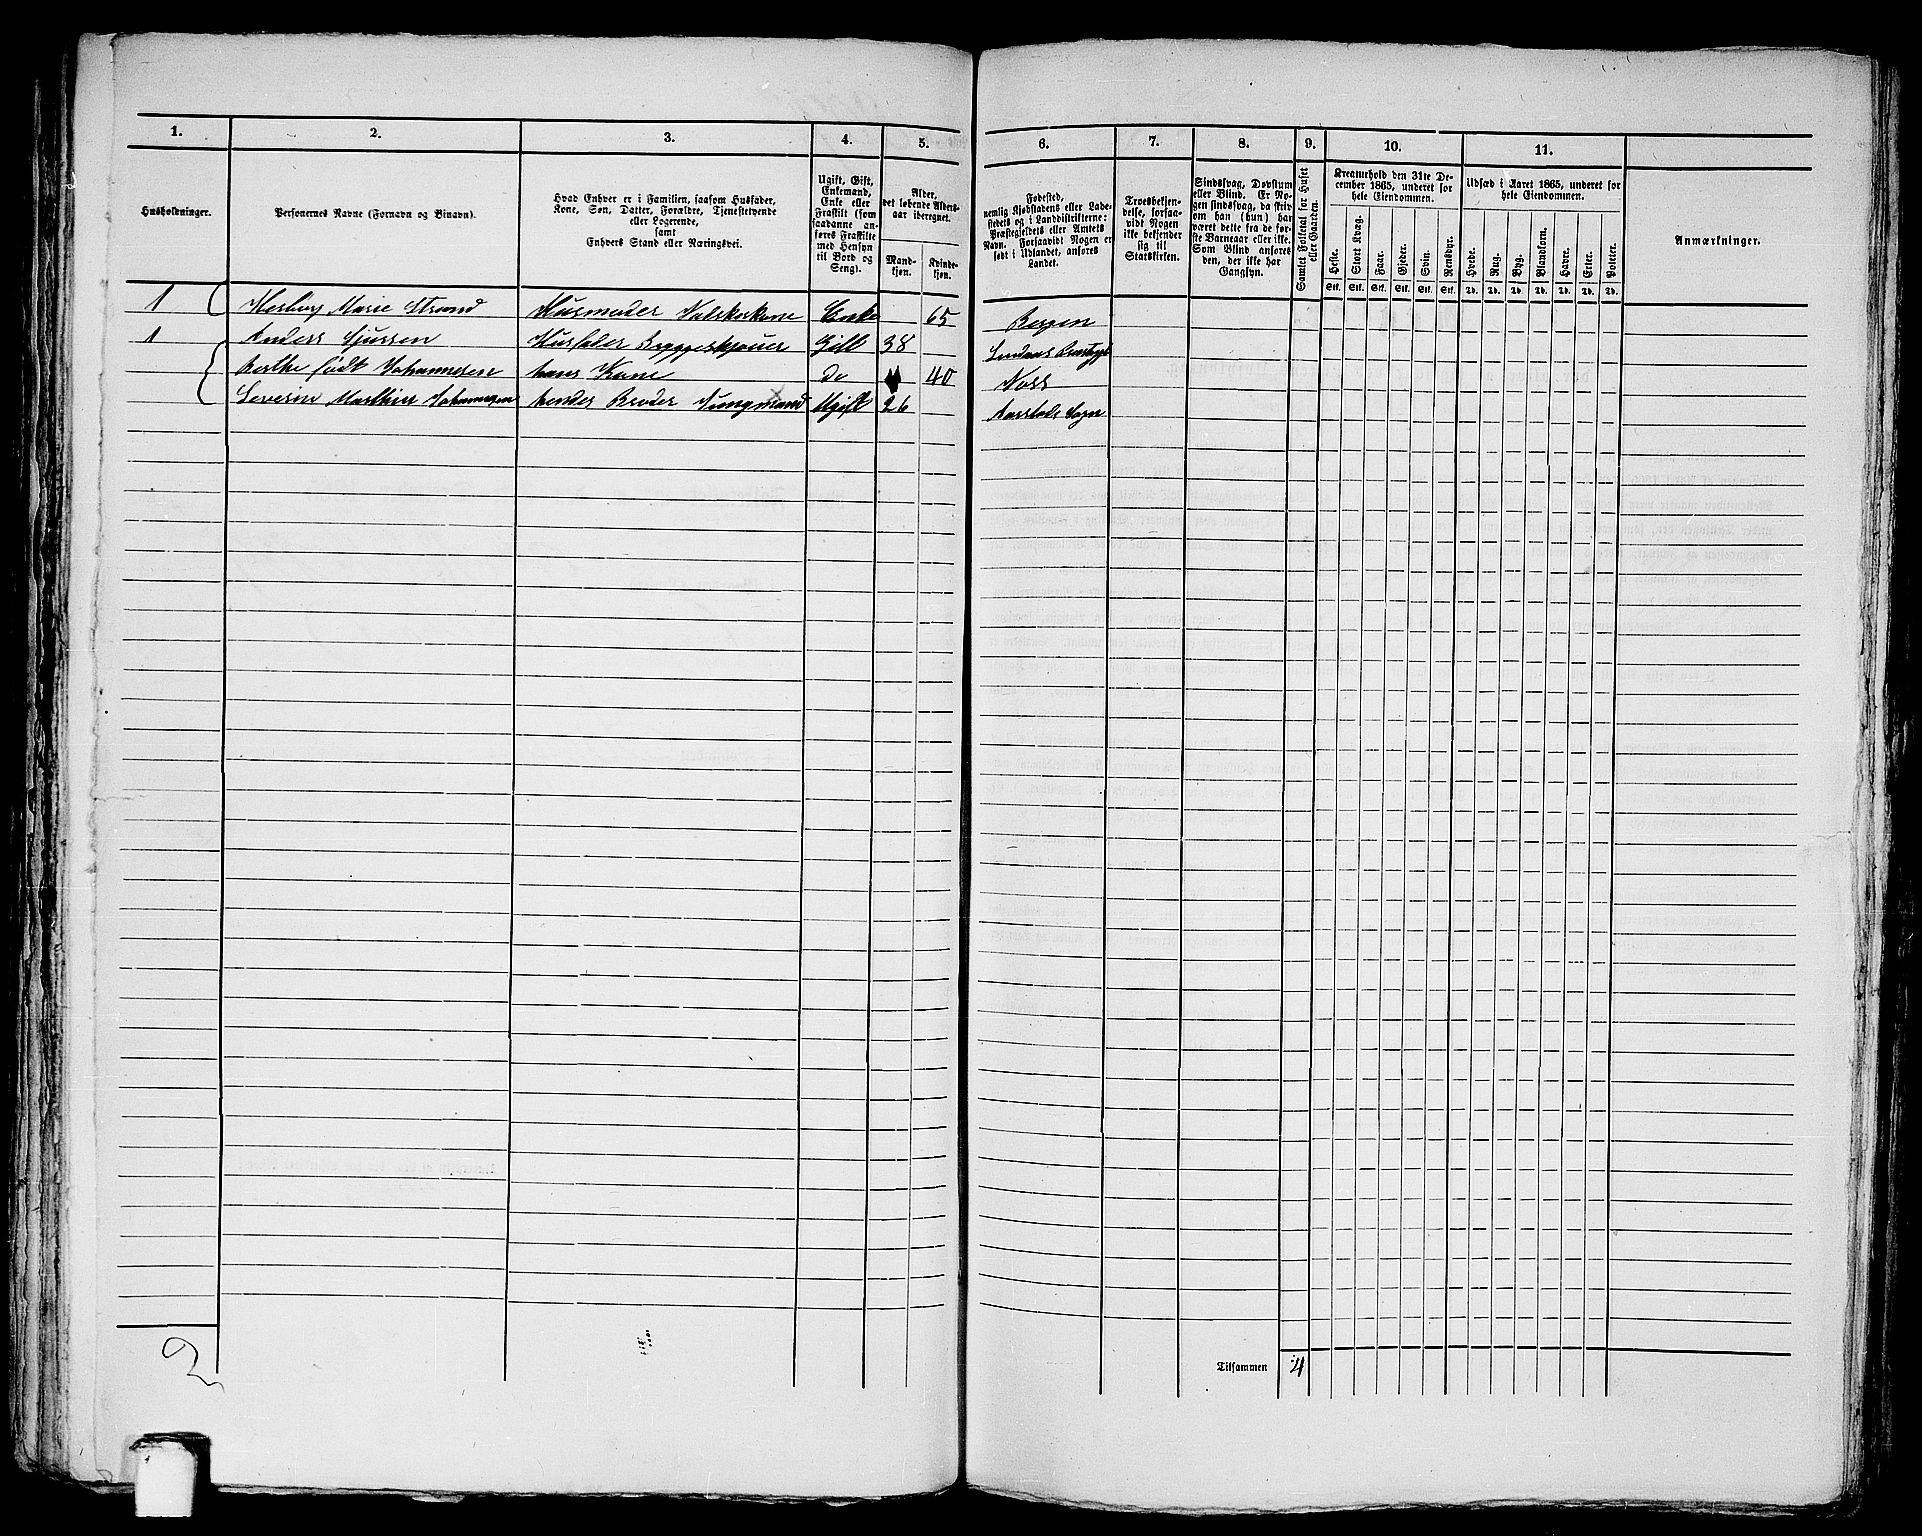 1. 2. 3. 4. 5. 6. 7. 8. 9. 10. 11.
Husholdninger.
Personernes Navne (Fornavn og Binavn).
Hvad Enhver er i Familien, saasom Husfader,
Kone, Søn, Datter, Forældre, Tjenestetyende
eller Logerende,
samt
Enhvers Stand eller Næringsvei.
Ugift, Gift,
Enkemand,
Enke eller
Fraskilt (som
saadanne an-
føres Fraskilte
med Hensyn
til Bord og
Seng).
Alder,
det løbende Alders-
aar iberegnet.
Mand-
kjøn.
Kvinde-
kjøn.
Fødested,
nemlig Kjøbstadens eller Lade-
stedets og i Landdistrikterne:
Præstegjeldets eller Amtets
Navn. Forsaavidt Nogen er
født i Udlandet, anføres
Landet.
Troesbekjen-
delse, forsaa-
vidt Nogen
ikke bekjender
sig til
Statskirken.
Sindssvag, Døvstum
eller Blind. Er No-
gen sindssvag, da skriv
om han (hun) har
været dette fra de før-
ste Barneaar eller ikke.
Som Blind ansøres
den, der ikke har
Gangsyn.
Samlet Folketal for Huset
eller Gaarden.
Kreaturhold den 31te De-
cember 1865, underet for
hele Eiendommen.
Heste.
Stort Kvæg.
Faar.
Gjeder.
Svin.
Rensdyr.
Stk. Stk. Stk. Stk. Stk. Stk.
Udsæd i Aaret 1865, underet for
hele Eiendommen.
Hvede.
Rug.
Byg.
Blandkorn.
Havre.
Erter.
Poteter.
Td. Td. Td. Td. Td. Td. Td.
Anmærkninger.
1 Marie Strand Husmoder Enke 65 Bergen
1 Anders Husfader Gift 38
født Johannesen hans Kone do 40 Voss
Severin Marthin Johannesen hendes Broder Jungmand Ugift 26 Aarstads Sogn
2
Tilsammen 4